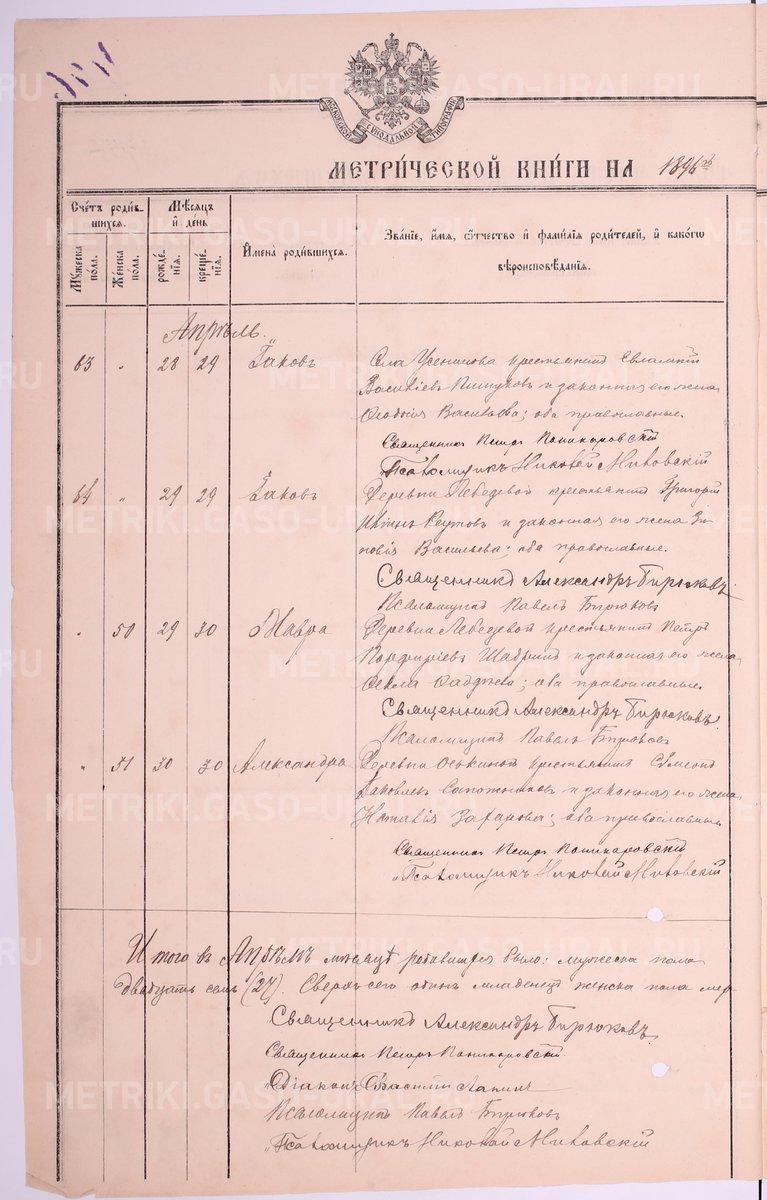 МОСКОВСКОЙ СѴНОДАЛЬНОЙ ТИПОГРАФІИ
МЕТРИ́ЧЕСКОЙ КНИ́ГИ НА 1896 го
Сче́тъ роди́в-
шихсѧ.
Мѣ́сѧцъ
и҆ де́нь
Му́жеска
по́ла.
Же́нска
по́ла.
рожде́-
нїѧ.
креще́-
нїѧ.
И҆мена̀ роди́вшихсѧ.
Зва́нїе, и҆́мѧ, ѻ҆́тчество и҆ фами́лїѧ роди́телей, и҆ како́гѡ
вѣроисповѣ́данїѧ.
Апрѣль.
63 " 28 29 Іаковъ Села крестьянинъ Евлампій
Васильевъ и законная его жена
Васильева; оба православные.
Священникъ Петръ Пономаровскій
Псаломщикъ Николай Миковскій
64 " 29 29 Іаковъ Деревни Лебедевой крестьянинъ Григорій
Реутовъ и законная его жена Зи-
новія Васильева; оба православные.
Священникъ Александръ Бирюковъ.
Псаломщикъ Павелъ Бирюковъ
" 50 29 30 Мавра Деревни Лебедевой крестьянинъ Петръ
Порфиріевъ Шабринъ и законная его жена
Фекла Фаддѣева; оба православные.
Священникъ Александръ Бирюковъ.
Псаломщикъ Павелъ Бирюковъ
" 51 30 30 Александра Деревни Оськиной крестьянинъ Сѵмеонъ
Іаковлевъ Сапожниковъ и законная его жена
Наталія Захарова; оба православные.
Священникъ Петръ Пономаровскій
Псаломщикъ Николай Миковскій
Итого въ Апрѣлѣ мѣсяцѣ родившихся было: мужеска пола
двадцать семь (27). Сверхъ сего одинъ младенецъ женска пола мер-
Священникъ Александръ Бирюковъ.
Священникъ Петръ Пономаровскій
Діаконъ Василій Лапинъ
Псаломщикъ Павелъ Бирюковъ
Псаломщикъ Николай Миковскій
METRIKI.GASO-URAL.RU